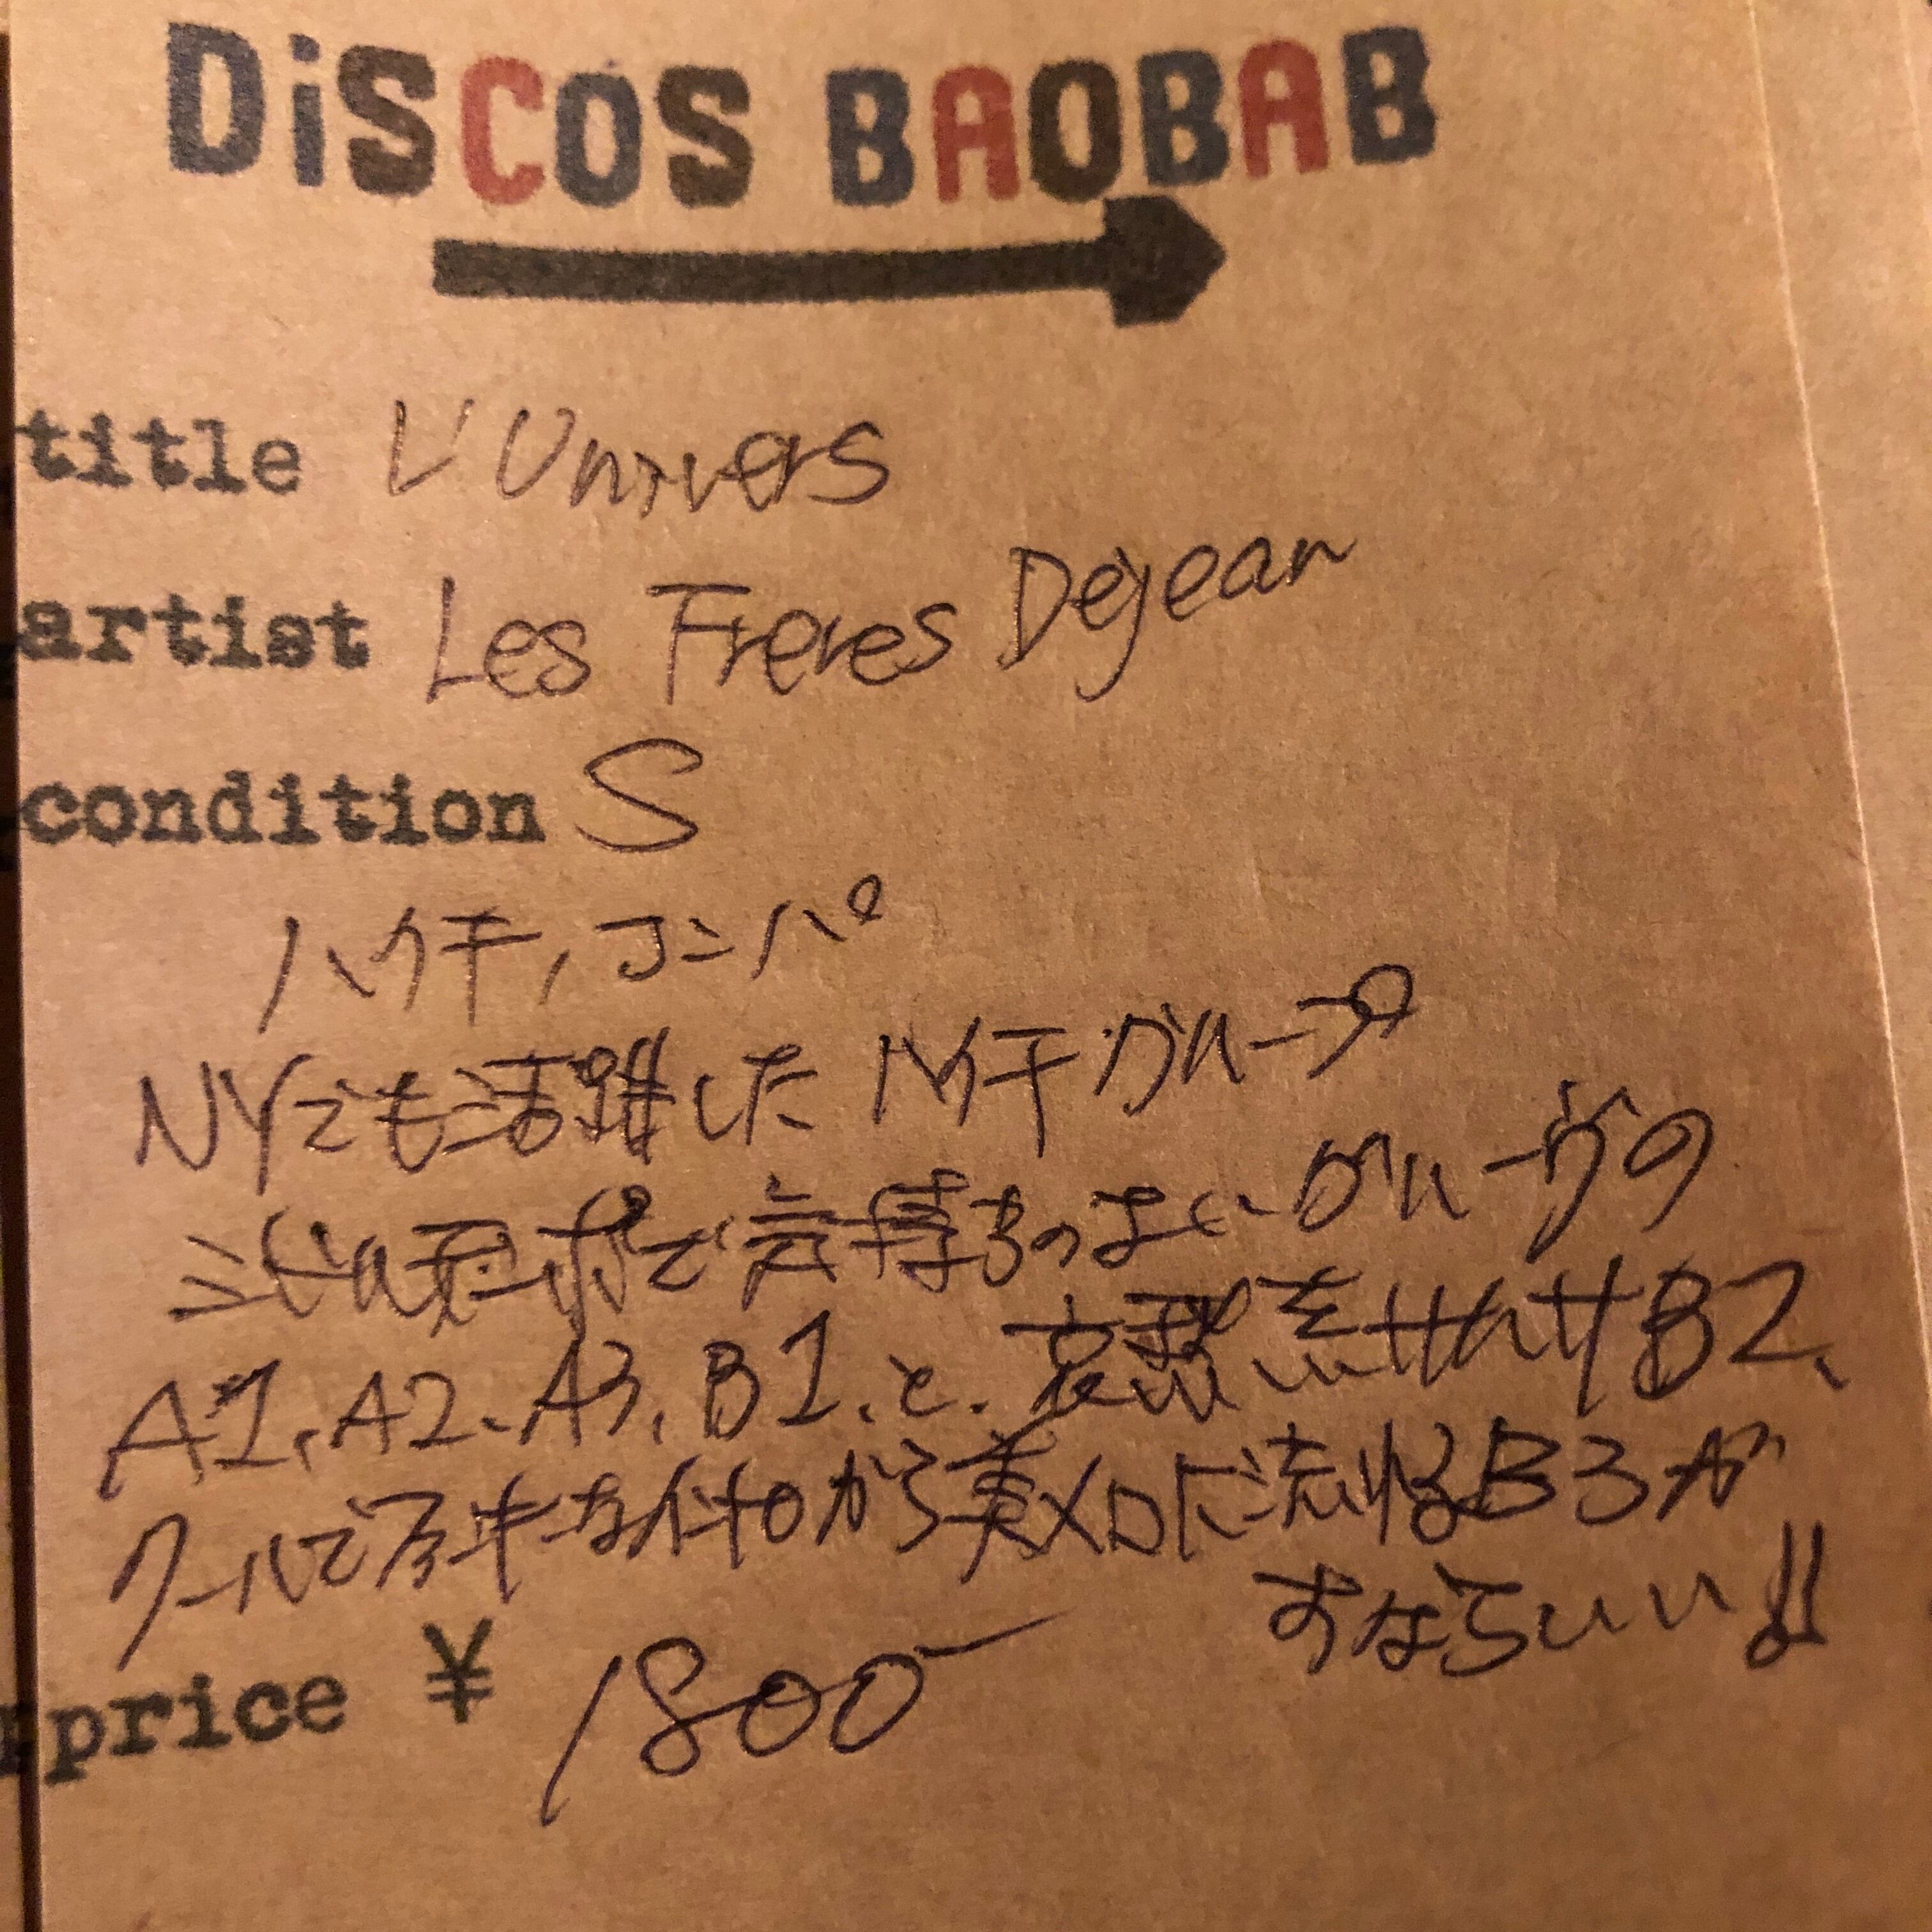 DiSCOS BAOBAB
title L'Univers
artist Les Freres Dejean
condition S
ハイチ、コンパ
NYでも活躍したハイチグループ
ミドルテンポで気持ちのよいグルーヴの
A1、A2、A3、B1、と、哀愁系サルサB2、
クールでファンキーなイントロから美メロに流れるB3が
すばらしい!!
price ¥ 1800-